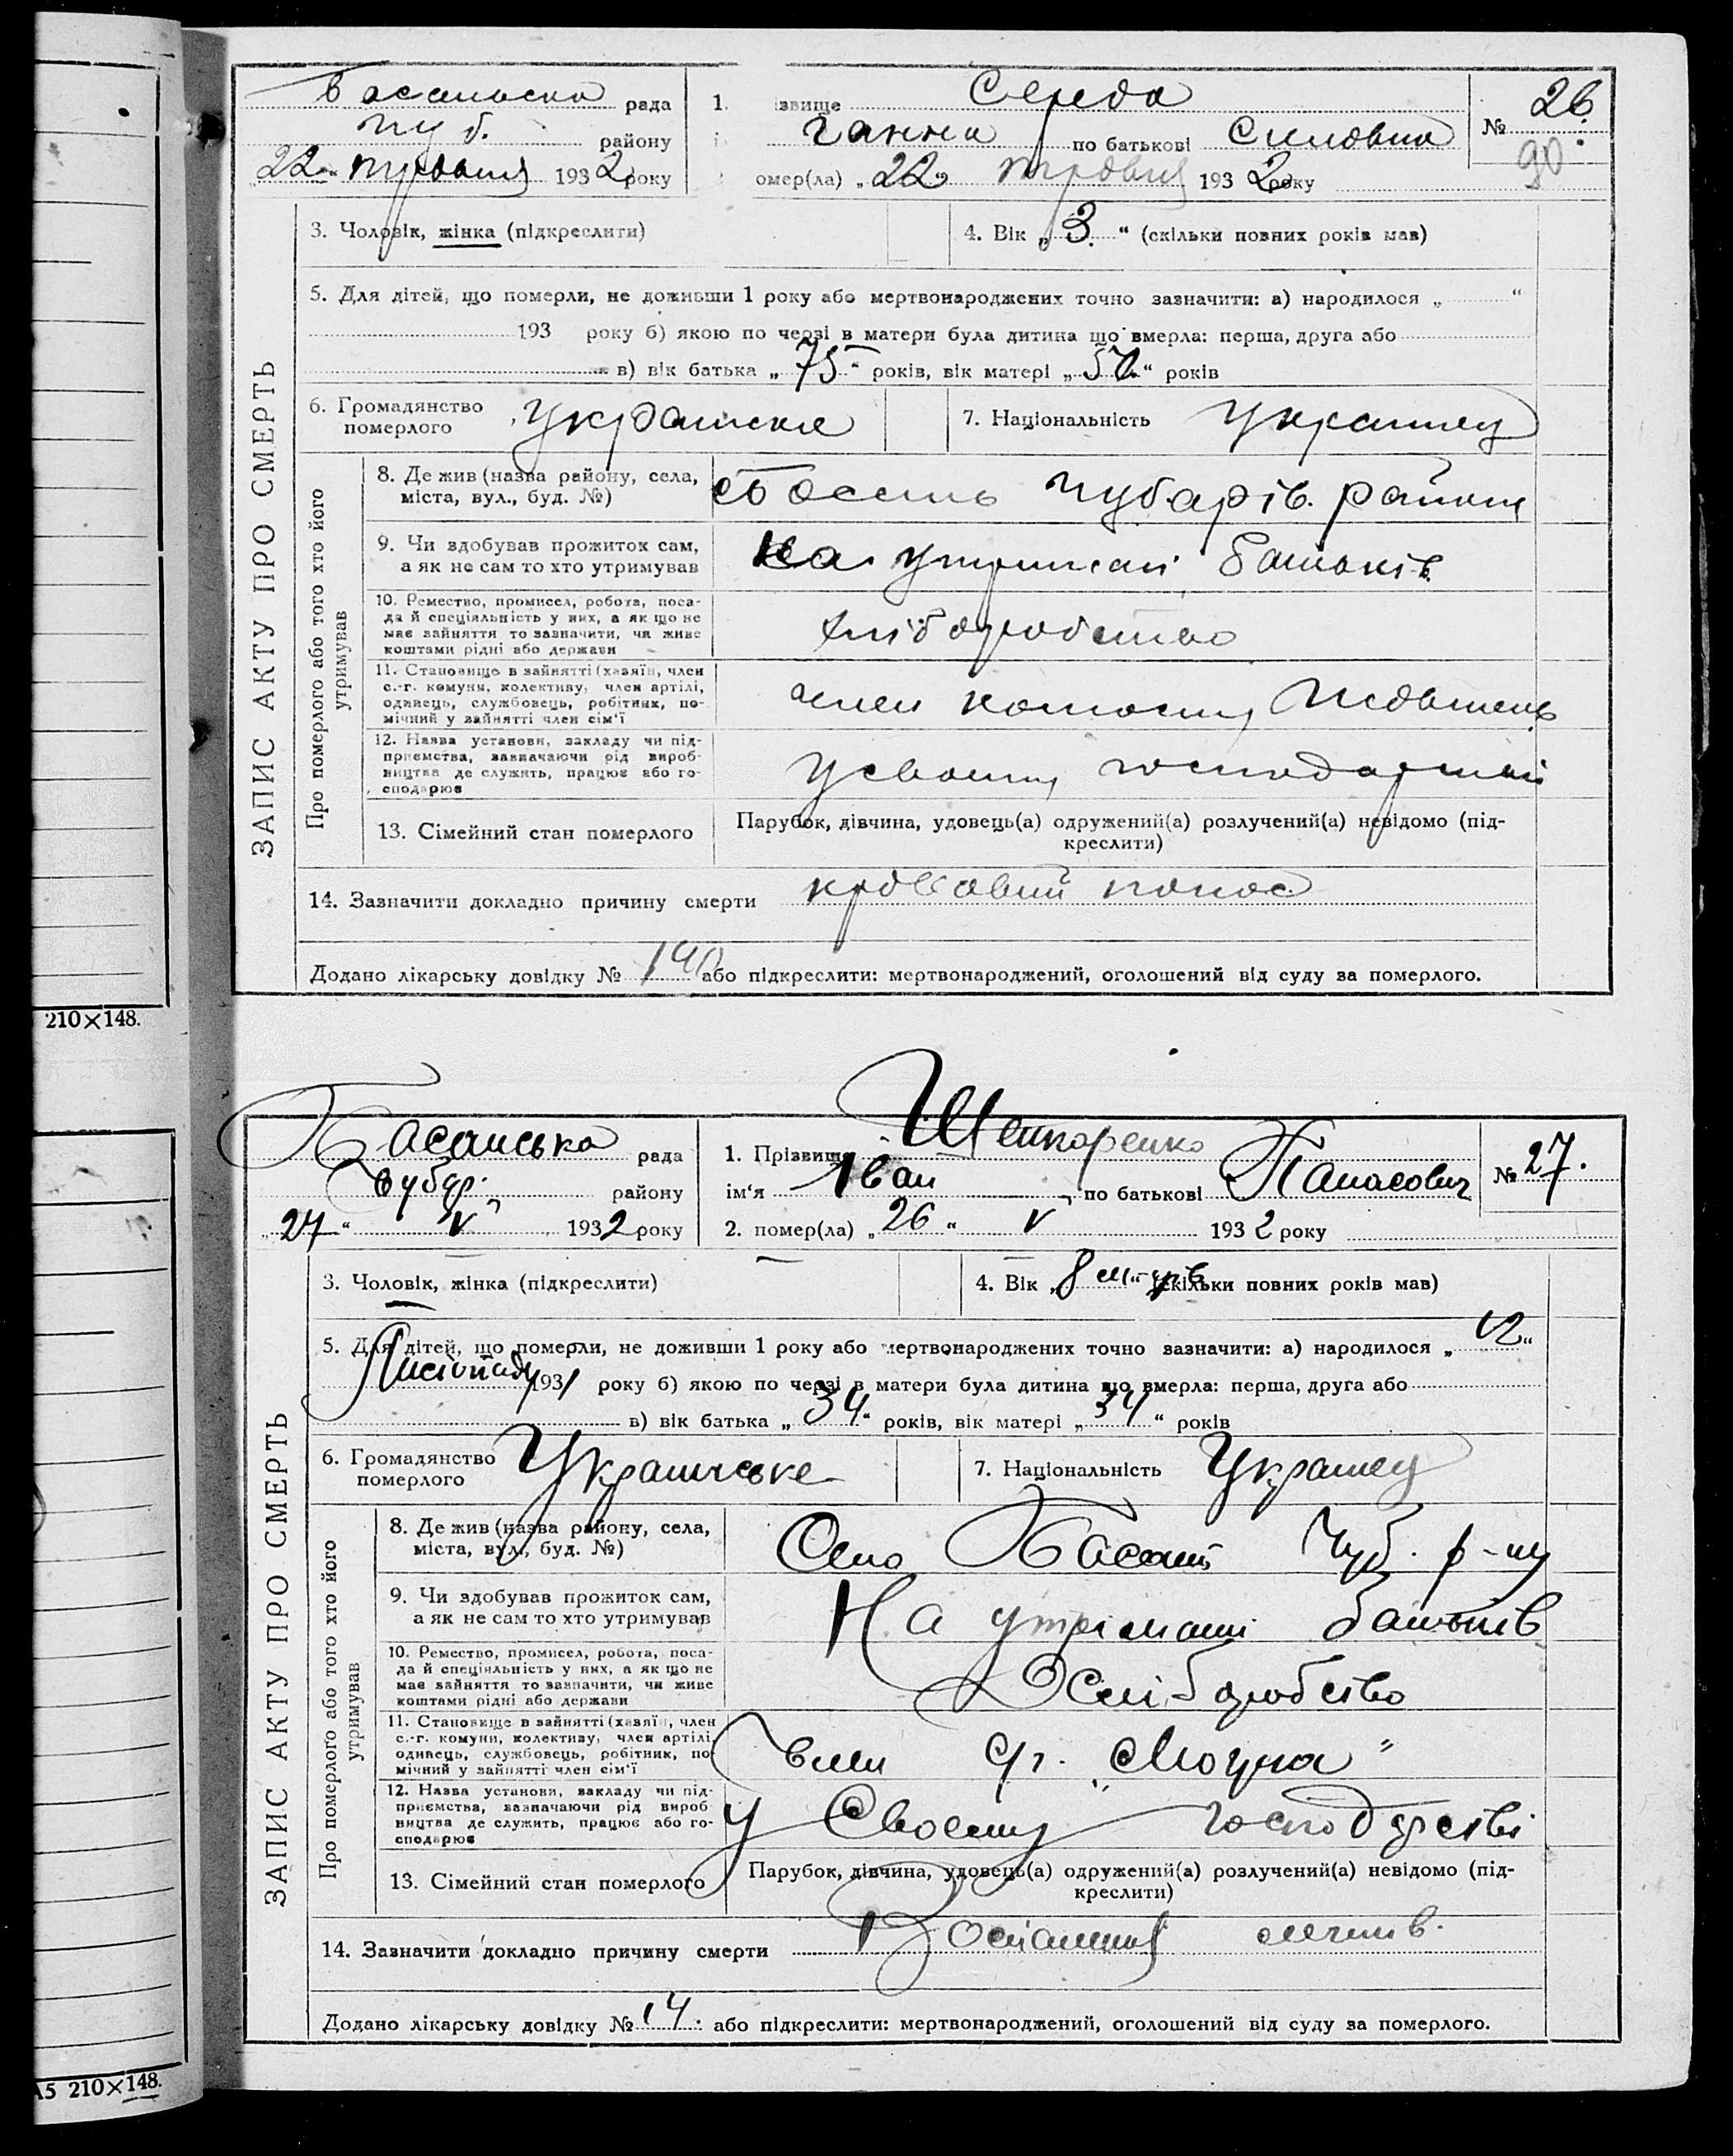 Басанська рада
Чуб. району
„22“ травня 1932 року
1. ізвище Середа
Ганна по батькові Силовна
омер(ла) „22“ травня 1932 року
№ 26.
90
3. Чоловік, жінка (підкреслити)
4. Вік „3.“ (скільки повних років мав)
5. Для дітей, що померли, не доживши 1 року або мертвонароджених точно зазначити: а) народилося „ “
193 року б) якою по черзі в матери була дитина що вмерла: перша, друга або
в) вік батька „75“ років, вік матері „52“ років
6. Громадянство померлого Українське
7. Національність Українец
ЗАПИС АКТУ ПРО СМЕРТЬ
Про померлого або того хто його утримував
8. Де жив (назва району, села, міста, вул., буд. №)
с Басань Чубарів. району
9. Чи здобував прожиток сам, а як не сам то хто утримував
На утриманні батьків
10. Ремество, промисел, робота, поса-
да й спеціяльність у них, а як що не
має зайняття то зазначити, чи живе
коштами рідні або держави
хліборобство
11. Становище в зайнятті (хазяїн, член
с.-г. комуни, колективу, член артілі,
одинець, службовець, робітник, по-
мічний у зайнятті член сім'ї
член колгоспу Жовтень
12. Назва установи, закладу чи під-
приємства, зазначаючи рід вироб-
ництва де служить, працює або го-
сподарює
У своему господарстві
13. Сімейний стан померлого
Парубок, дівчина, удовець(а) одружений(а) розлучений(а) невідомо (під-
креслити)
14. Зазначити докладно причину смерти кровавий понос
Додано лікарську довідку № або підкреслити: мертвонароджений, оголошений від суду за померлого.
210×148.
Басанська рада
Чубар. району
„27“ V 1932 року
1. Прізвище
ім'я Іван по батькові Панасович
2. помер(ла) „26“ V 1932 року
№ 27.
3. Чоловік, жінка (підкреслити)
4. Вік „8 м-ців“ (скільки повних років мав)
5. Для дітей, що померли, не доживши 1 року або мертвонароджених точно зазначити: а) народилося „12“
Листопаду 1931 року б) якою по черзі в матери була дитина що вмерла: перша, друга або
в) вік батька „34“ років, вік матері „34“ років
6. Громадянство померлого Українське
7. Національність Українец
ЗАПИС АКТУ ПРО СМЕРТЬ
Про померлого або того хто його утримував
8. Де жив (назва району, села, міста, вул., буд. №)
Село Басань Чуб. р-ну
9. Чи здобував прожиток сам, а як не сам то хто утримував
На утріманні батьків
10. Ремество, промисел, робота, поса-
да й спеціяльність у них, а як що не
має зайняття то зазначити, чи живе
коштами рідні або держави
Хліборобство
11. Становище в зайнятті (хазяїн, член
с.-г. комуни, колективу, член артілі,
одинець, службовець, робітник, по-
мічний у зайнятті член сім'ї
Член
12. Назва установи, закладу чи під-
приємства, зазначаючи рід вироб-
ництва де служить, працює або го-
сподарює
У Своему господарстві
13. Сімейний стан померлого
Парубок, дівчина, удовець(а) одружений(а) розлучений(а) невідомо (під-
креслити)
14. Зазначити докладно причину смерти
Додано лікарську довідку № 14. або підкреслити: мертвонароджений, оголошений від суду за померлого.
А5 210×148.